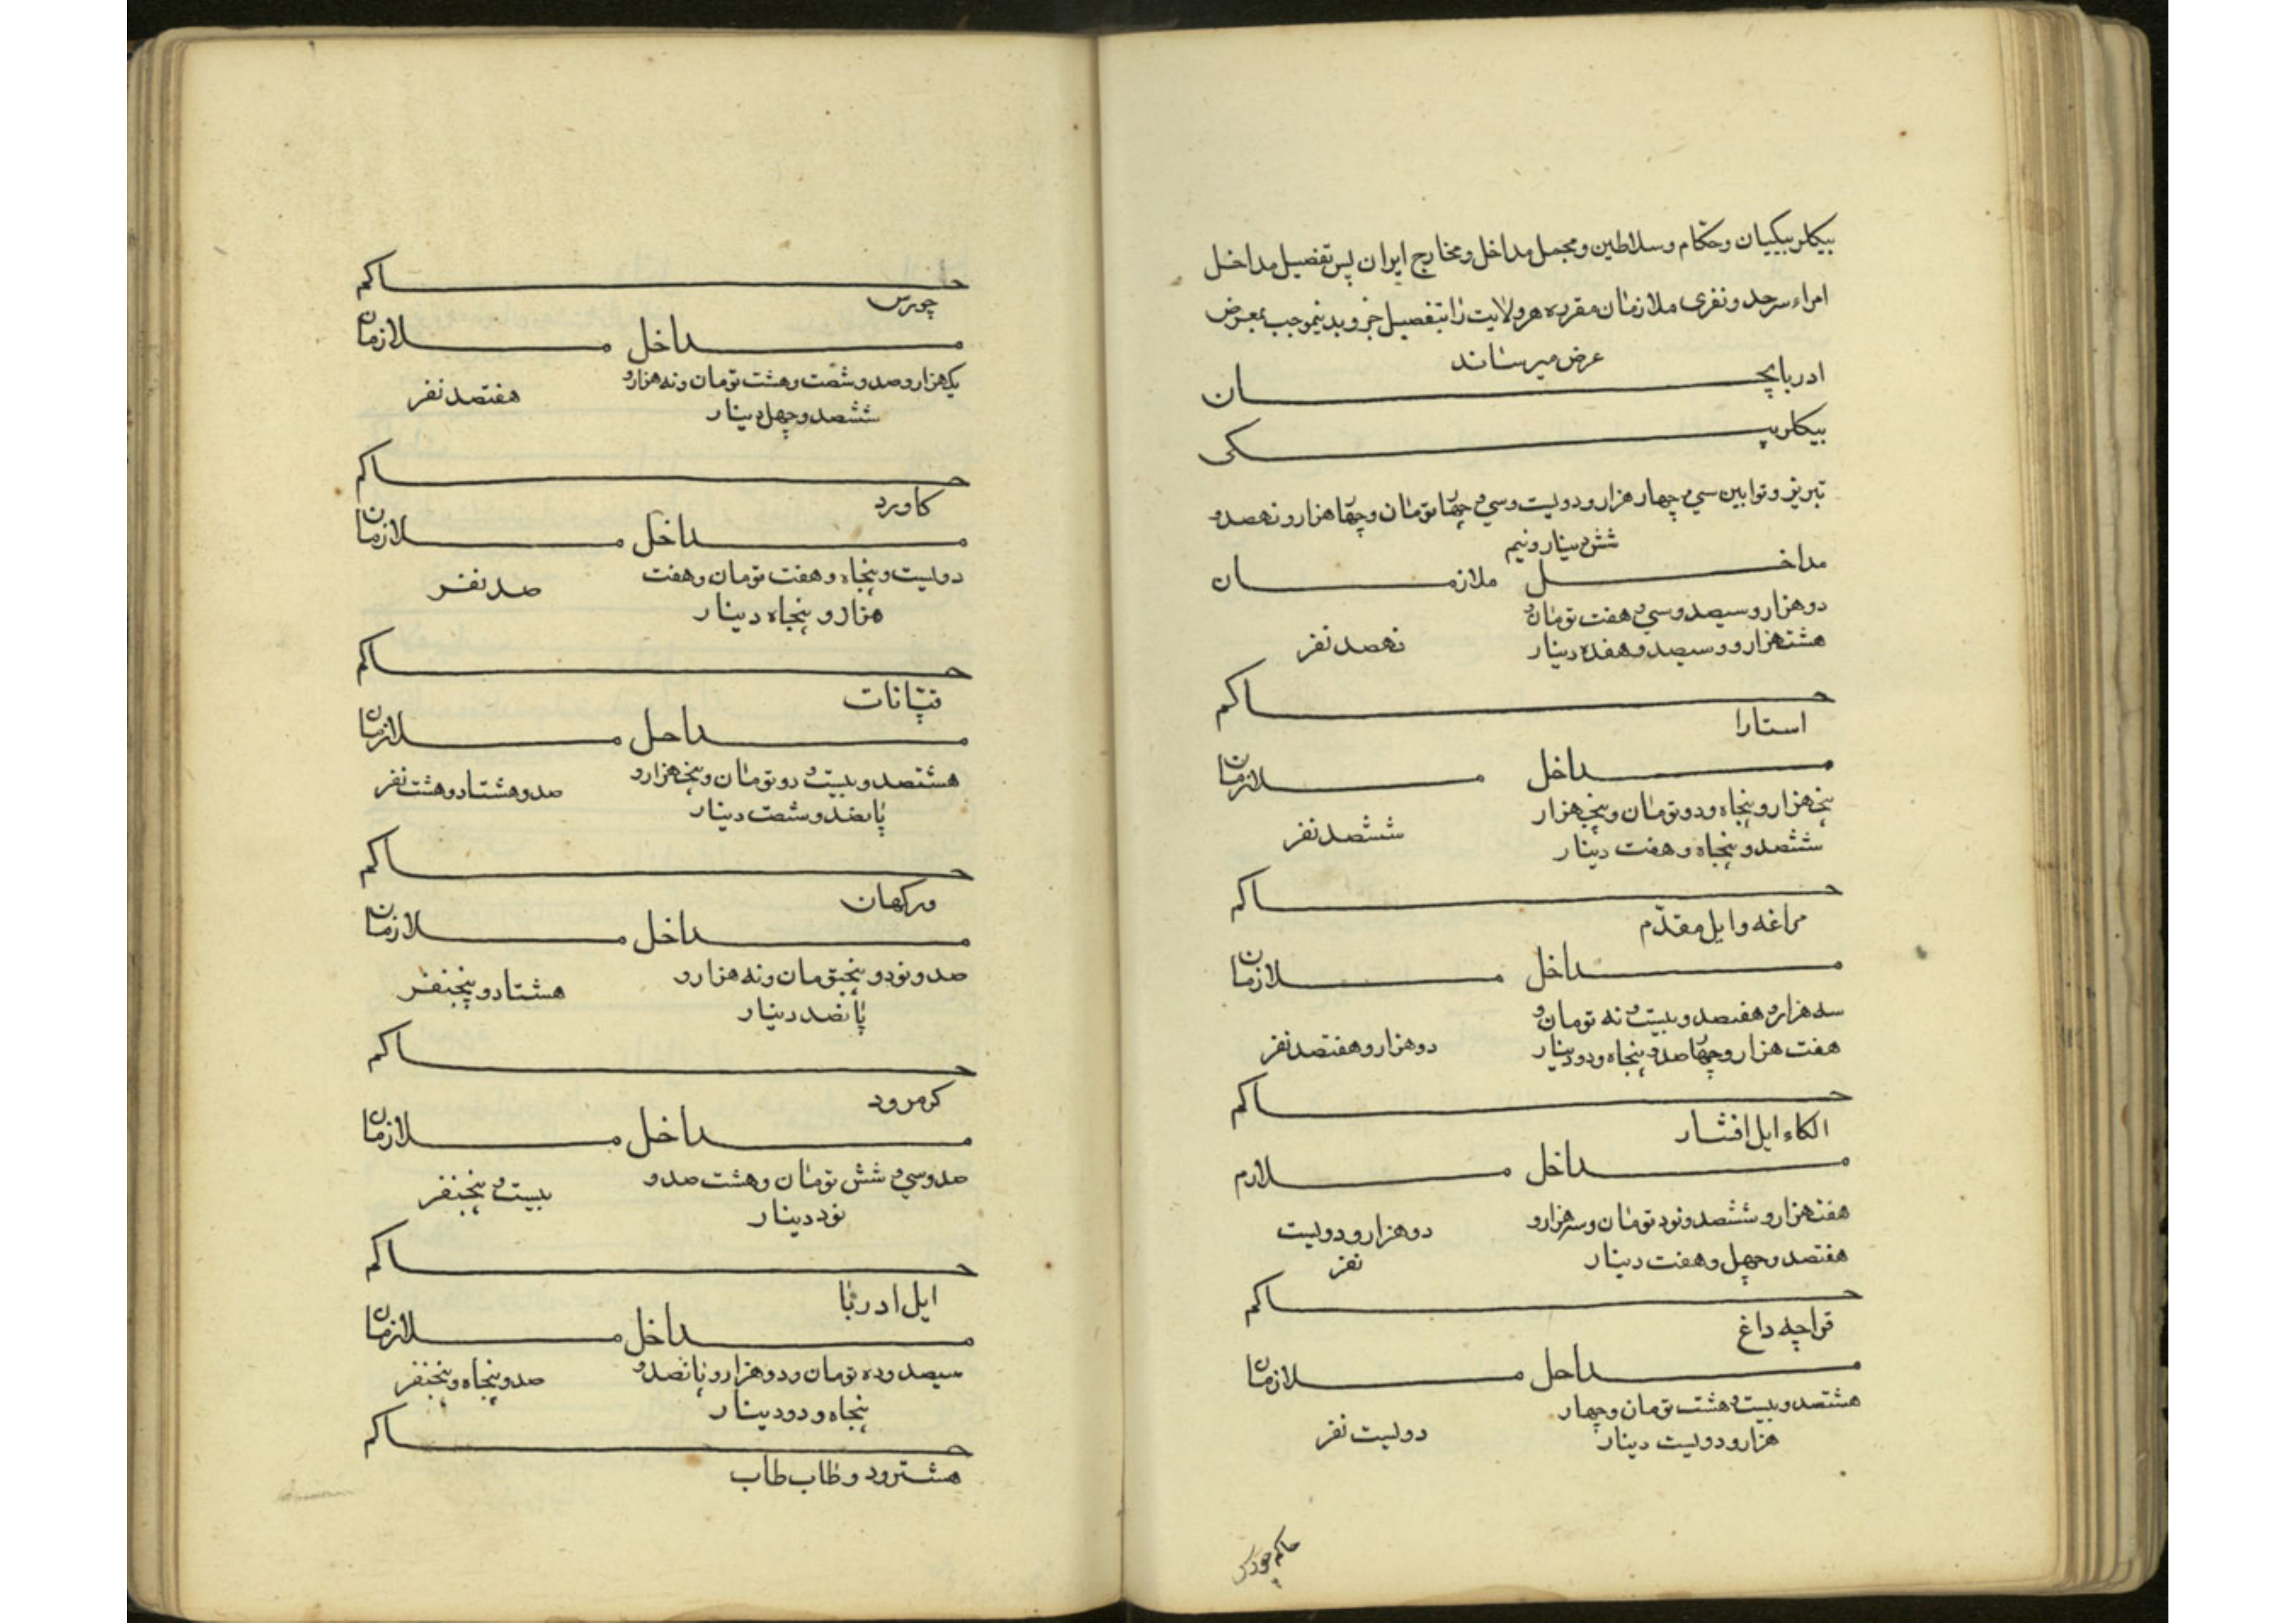 بیکلربیکیان وحکام وسلاطین ومجمل مداخل ومخارج ایران پس تفضیل مداخل
امراء سرحد ونفری ملازمان مقرره هر ولایت را بتفصیل جز و بدینموجب بمعرض
عرض میرساند
ادربایجان
بیکلربیکی
تبریز وتوابین سی و چهار هزار و دولیت وسی و چهار تومان وچهار هزار ونهصد و
شش دینار ونیم
مداخل ملازمان
دوهزار وسیصد وسی و هفت تومان و
هشتهزار و وسیصد وهفده دینار
نهصد نفر
حاکم
استارا
مداخل ملازمان
پنجهزار و پنجاه ودو تومان و پنجهزار
ششصد و پنجاه وهفت دینار
ششصد نفر
حاکم
مراغه وایل مقدّم
مداخل ملازمان
سه هزار و هفتصد وبیست و نه تومان و
هفت هزار وچهار صد و پنجاه ودو دینار
دوهزار وهفتصد نفر
حاکم
الکاء ایل افشار
مداخل ملازم
هفتهزار و ششصد ونود تومان وسه هزار و
هفتصد وچهل وهفت دینار
دوهزار و دولیت
نفر
حاکم
قراجه داغ
مداحل ملازمان
هشتصد وبیست و هشت تومان وچهار
هزار و دولیت دینار
دولیت نفر
حاکم چورس
حاکم
چورس
مداخل ملازمان
یکهزار وصد وشصت وهشت تومان ونه هزار و
ششصد وچهل دینار
هفتصد نفر
حاکم
کاورد
مداخل ملازمان
دولیت و پنجاه وهفت تومان وهفت
هزار و پنجاه دینار
صد نفر
حاکم
قپانات
مداحل ملازمان
هشتصد وبیست و دو تومان و پنجهزار و
پانصد وشصت دینار
صد وهشتاد وهشت نفر
حاکم
ورکهان
مداخل ملازمان
صد ونود و پنجتومان ونه هزار و
پانصد دینار
هشتاد و پنجنفر
حاکم
کرمرود
مداخل ملازمان
صد وسی و شش تومان وهشت صد و
نود دینار
بیست و پنجنفر
حاکم
ایل ادربا
مداخل ملازمان
سیصد وده تومان ودوهزار و پانصد و
پنجاه و دو دینار
صد و پنجاه و پنجنفر
حاکم
هشترود وطاب طاب